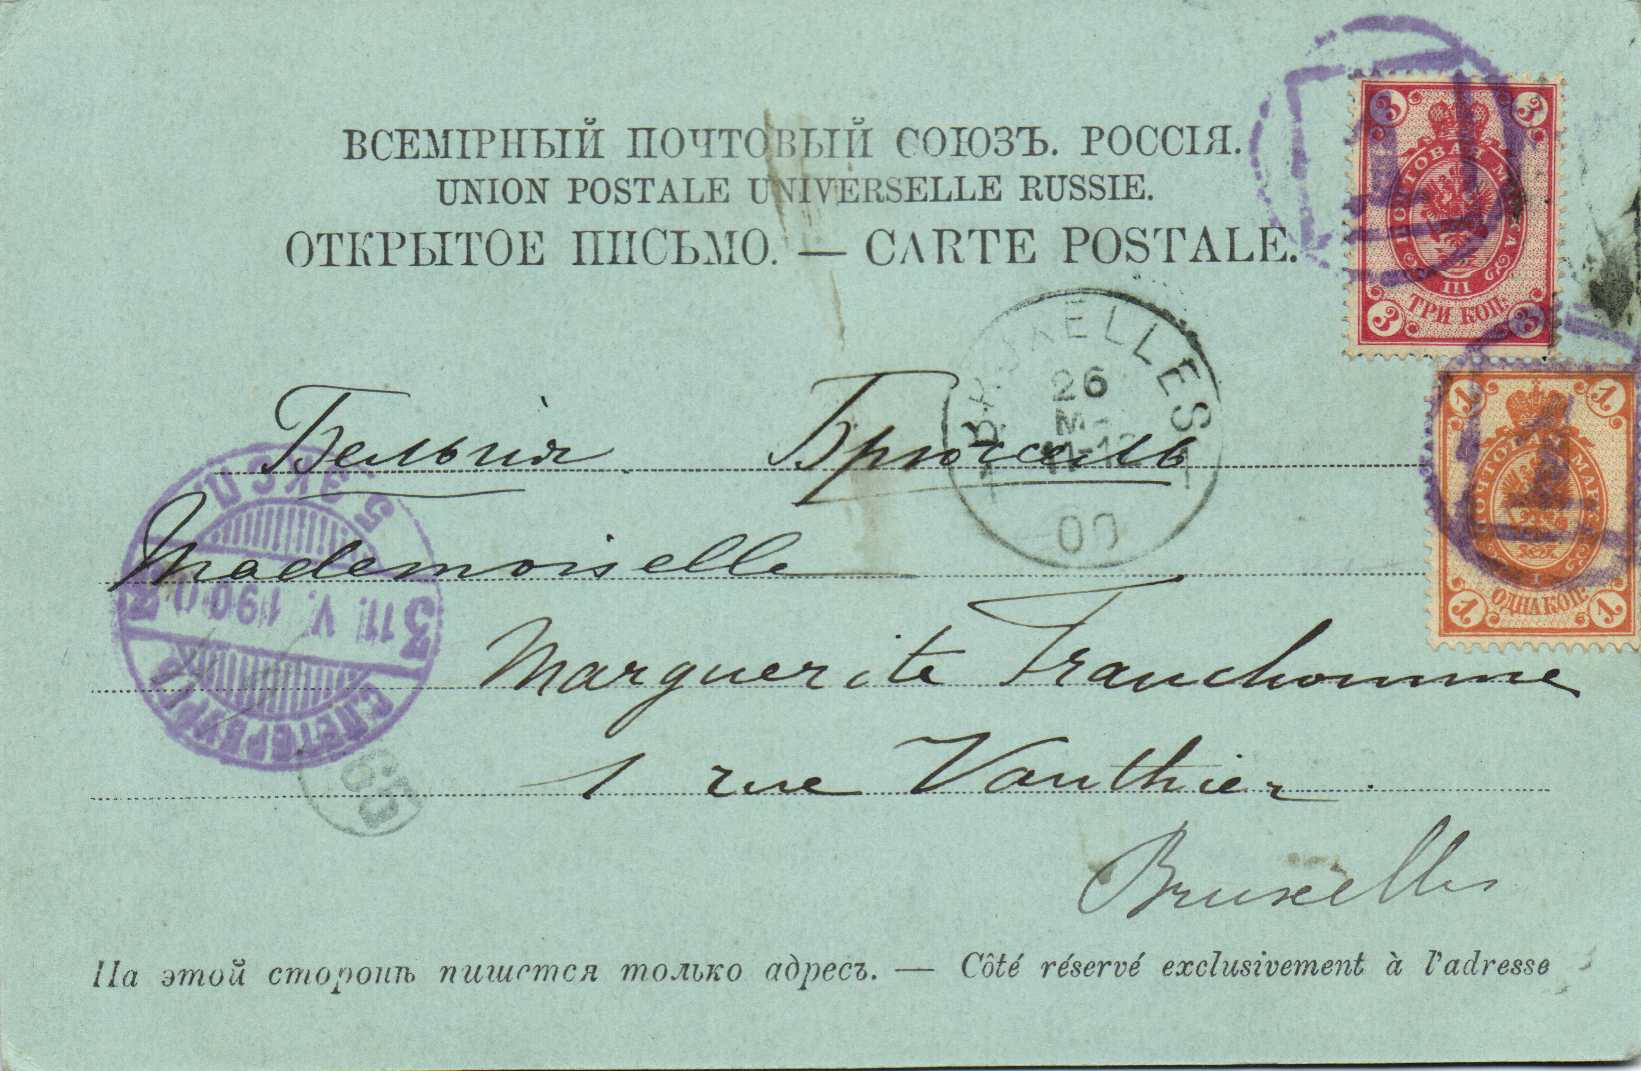 ВСЕМІРНЫЙ ПОЧТОВЫЙ СОЮЗЪ. РОССІЯ.
UNION POSTALE UNIVERSELLE RUSSIE.
ОТКРЫТОЕ ПИСЬМО. — CARTE POSTALE.
3 3
ПОЧТОВАЯ МАРКА
III
ТРИ КОП.
3 3
1 1
ПОЧТОВАЯ МАРКА
I
ОДНА КОП.
1 1
BRUXELLES
26
11-12
1 1
00
Бельгія Брюссель
Mademoiselle
Marguerite Franchomme
1 rue Vauthier
Bruxelles
С.ПЕТЕРБУРГЪ
3 11. V. 1900 3
5 ЭКСП.
65
На этой сторонѣ пишется только адресъ. — Côté réservé exclusivement à l'adresse